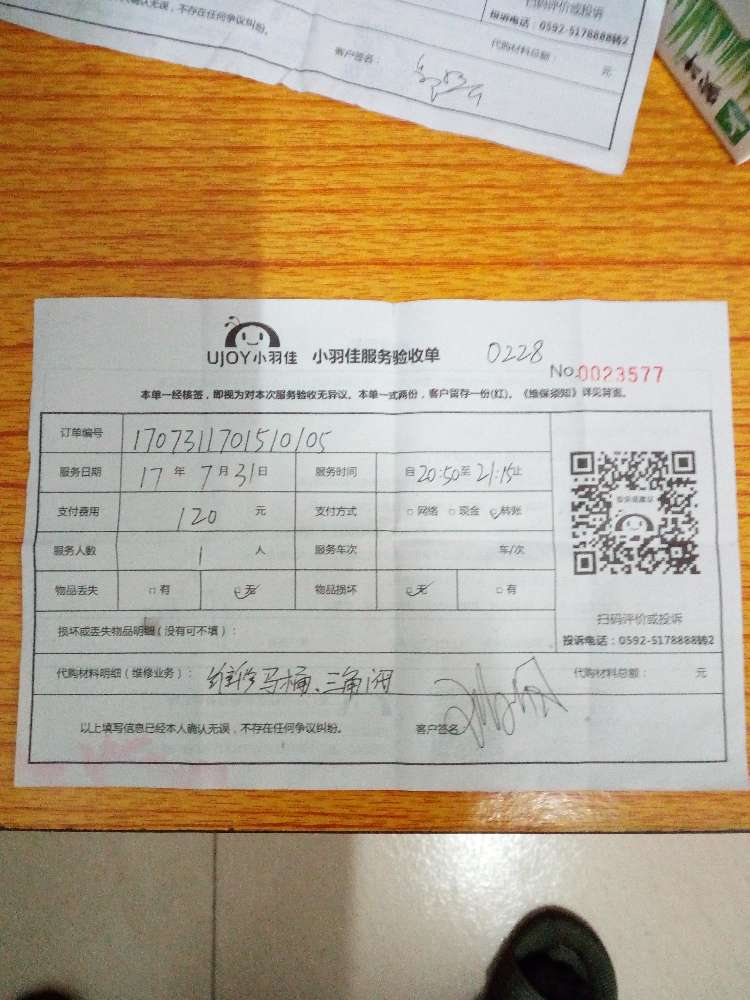 扫码评价或投诉
人确认无误，不存在任何争议纠纷。
投诉电话：0592-5178888转2
客户签名：
代购材料总额：
元
UJOY小羽佳 小羽佳服务验收单 0228
No.0023577
本单一经核签，即视为对本次服务验收无异议。本单一式两份，客户留存一份(红)。《维保须知》详见背面。
订单编号 1707311701510105
服务日期 17年7月31日 服务时间 自20:50至21:15止
支付费用 120元 支付方式 □网络 □现金 ☑转账
服务人数 1人 服务车次 车/次
物品丢失 □有 ☑无 物品损坏 ☑无 □有
扫码评价或投诉
损坏或丢失物品明细（没有可不填）：
投诉电话：0592-5178888转2
代购材料明细（维修业务）： 维修马桶、三角阀 代购材料总额： 元
以上填写信息已经本人确认无误，不存在任何争议纠纷。 客户签名